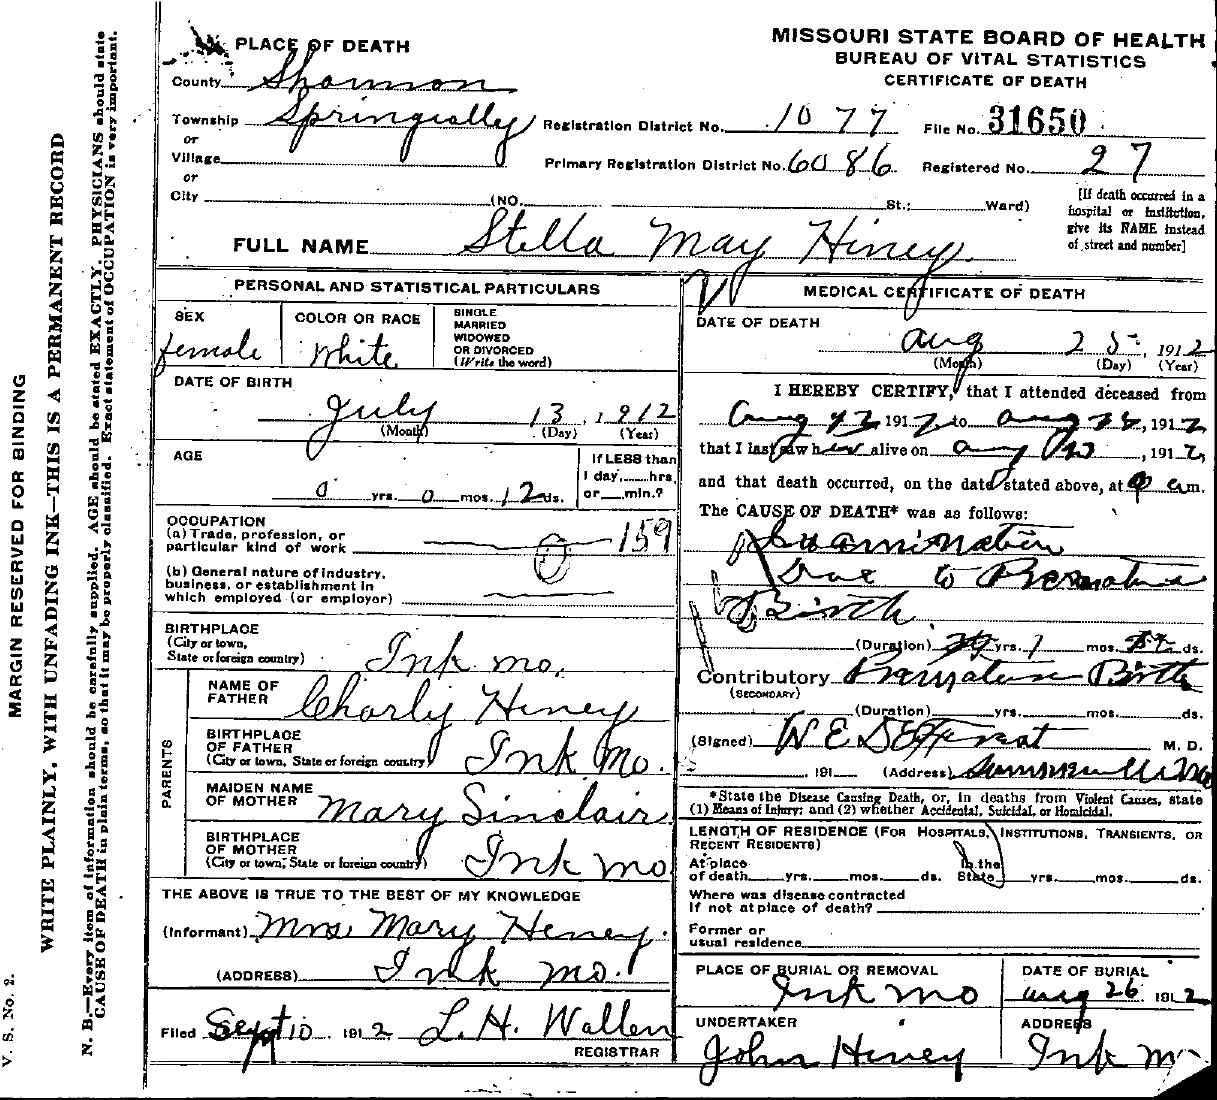 MISSOURI STATE BOARD OF HEALTH
BUREAU OF VITAL STATISTICS
CERTIFICATE OF DEATH
PLACE OF DEATH
County Shannon
Township Springvally Registration District No. 1077 File No. 31650
or
Village Primary Registration District No. 6086 Registered No. 27
or
City (NO. St.; Ward)
[If death occurred in a
hospital or institution,
give its NAME instead
of street and number]
FULL NAME Stella May Hiney
PERSONAL AND STATISTICAL PARTICULARS
SEX
female
COLOR OR RACE
White
SINGLE
MARRIED
WIDOWED
OR DIVORCED
(Write the word)
DATE OF BIRTH
July 13, 1912
(Month) (Day) (Year)
AGE
0 yrs. 0 mos. 12 ds.
If LESS than
1 day, hrs.
or min.?
OCCUPATION
(a) Trade, profession, or
particular kind of work 159
(b) General nature of industry,
business, or establishment in
which employed (or employer)
BIRTHPLACE
(City or town,
State or foreign country) Ink mo.
PARENTS
NAME OF
FATHER Charly Hiney
BIRTHPLACE
OF FATHER
(City or town, State or foreign country) Ink Mo.
MAIDEN NAME
OF MOTHER Mary Sinclair
BIRTHPLACE
OF MOTHER
(City or town, State or foreign country) Ink mo
THE ABOVE IS TRUE TO THE BEST OF MY KNOWLEDGE
(Informant) Mrs. Mary Heney.
(ADDRESS) Ink mo.
Filed Sept 10 1912 L. H. Wallen
REGISTRAR
MEDICAL CERTIFICATE OF DEATH
DATE OF DEATH
Aug 25, 1912
(Month) (Day) (Year)
I HEREBY CERTIFY, that I attended deceased from
Aug 1912 to Aug 1912
that I last saw her alive on Aug , 1912,
and that death occurred, on the date stated above, at a m.
The CAUSE OF DEATH* was as follows:
Due to Premature
Birth
(Duration) yrs. 1 mos. ds.
Contributory Premature Birth
(SECONDARY)
(Duration) yrs. mos. ds.
(Signed) W E M. D.
, 191 (Address)
*State the Disease Causing Death, or, in deaths from Violent Causes, state
(1) Means of Injury; and (2) whether Accidental, Suicidal, or Homicidal.
LENGTH OF RESIDENCE (FOR HOSPITALS, INSTITUTIONS, TRANSIENTS, OR
RECENT RESIDENTS)
At place In the
of death yrs. mos. ds. State yrs. mos. ds.
Where was disease contracted
If not at place of death?
Former or
usual residence
PLACE OF BURIAL OR REMOVAL
Ink mo
DATE OF BURIAL
Aug 26 1912
UNDERTAKER
John Hiney
ADDRESS
Ink Mo
MARGIN RESERVED FOR BINDING
WRITE PLAINLY, WITH UNFADING INK—THIS IS A PERMANENT RECORD
N. B.—Every item of information should be carefully supplied. AGE should be stated EXACTLY. PHYSICIANS should state
CAUSE OF DEATH in plain terms, so that it may be properly classified. Exact statement of OCCUPATION is very important.
V. S. No. 2.